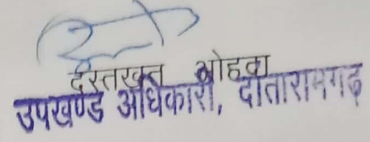 दस्तखत ओहदा
उपखण्ड अधिकारी, दांतारामगढ़